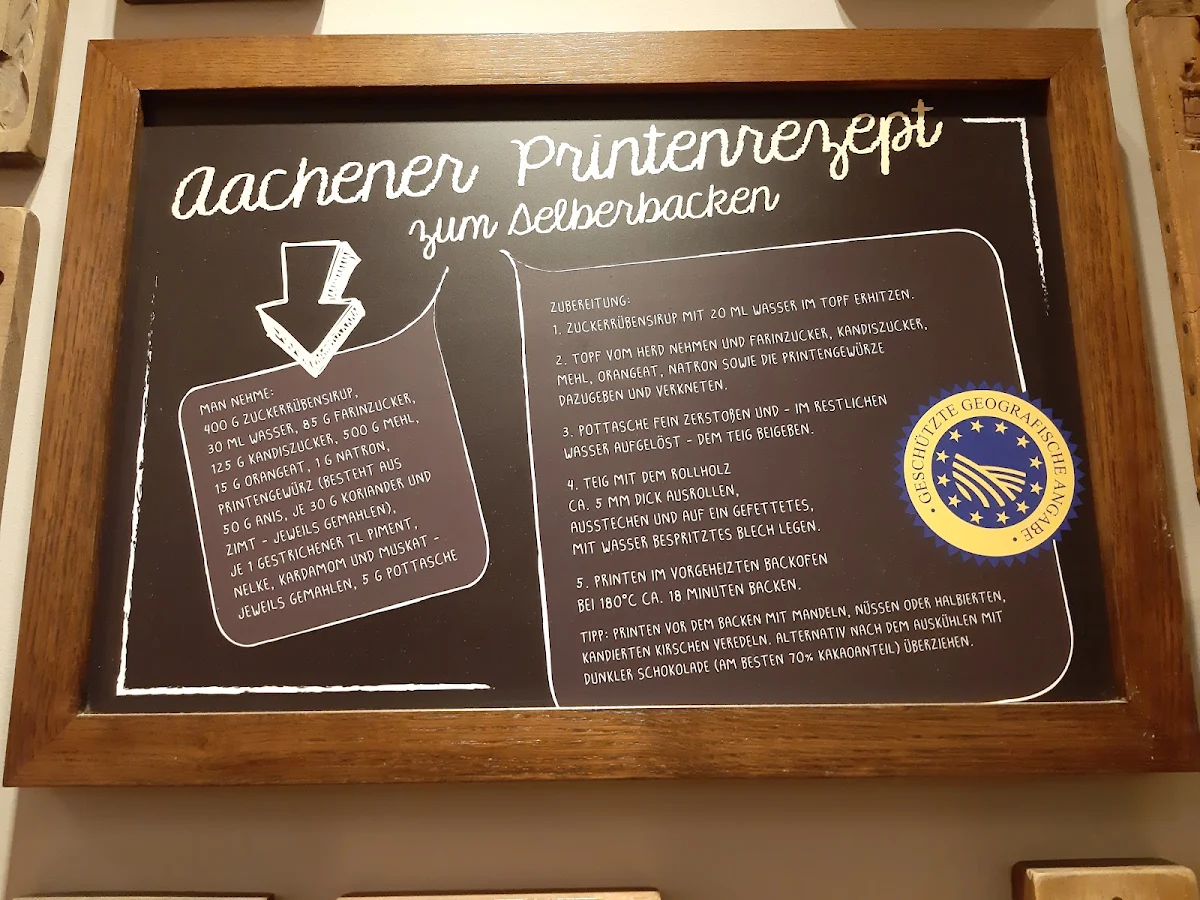 Aachener Printenrezept
zum Selberbacken
MAN NEHME:
400 G ZUCKERRÜBENSIRUP,
30 ML WASSER, 85 G FARINZUCKER,
125 G KANDISZUCKER, 500 G MEHL,
15 G ORANGEAT, 1 G NATRON,
PRINTENGEWÜRZ (BESTEHT AUS
50 G ANIS, JE 30 G KORIANDER UND
ZIMT - JEWEILS GEMAHLEN),
JE 1 GESTRICHENER TL PIMENT,
NELKE, KARDAMOM UND MUSKAT -
JEWEILS GEMAHLEN, 5 G POTTASCHE
ZUBEREITUNG:
1. ZUCKERRÜBENSIRUP MIT 20 ML WASSER IM TOPF ERHITZEN.
2. TOPF VOM HERD NEHMEN UND FARINZUCKER, KANDISZUCKER,
MEHL, ORANGEAT, NATRON SOWIE DIE PRINTENGEWÜRZE
DAZUGEBEN UND VERKNETEN.
3. POTTASCHE FEIN ZERSTOßEN UND - IM RESTLICHEN
WASSER AUFGELÖST - DEM TEIG BEIGEBEN.
4. TEIG MIT DEM ROLLHOLZ
CA. 5 MM DICK AUSROLLEN,
AUSSTECHEN UND AUF EIN GEFETTETES,
MIT WASSER BESPRITZTES BLECH LEGEN.
5. PRINTEN IM VORGEHEIZTEN BACKOFEN
BEI 180°C CA. 18 MINUTEN BACKEN.
TIPP: PRINTEN VOR DEM BACKEN MIT MANDELN, NÜSSEN ODER HALBIERTEN,
KANDIERTEN KIRSCHEN VEREDELN. ALTERNATIV NACH DEM AUSKÜHLEN MIT
DUNKLER SCHOKOLADE (AM BESTEN 70% KAKAOANTEIL) ÜBERZIEHEN.
• GESCHÜTZTE GEOGRAFISCHE ANGABE •